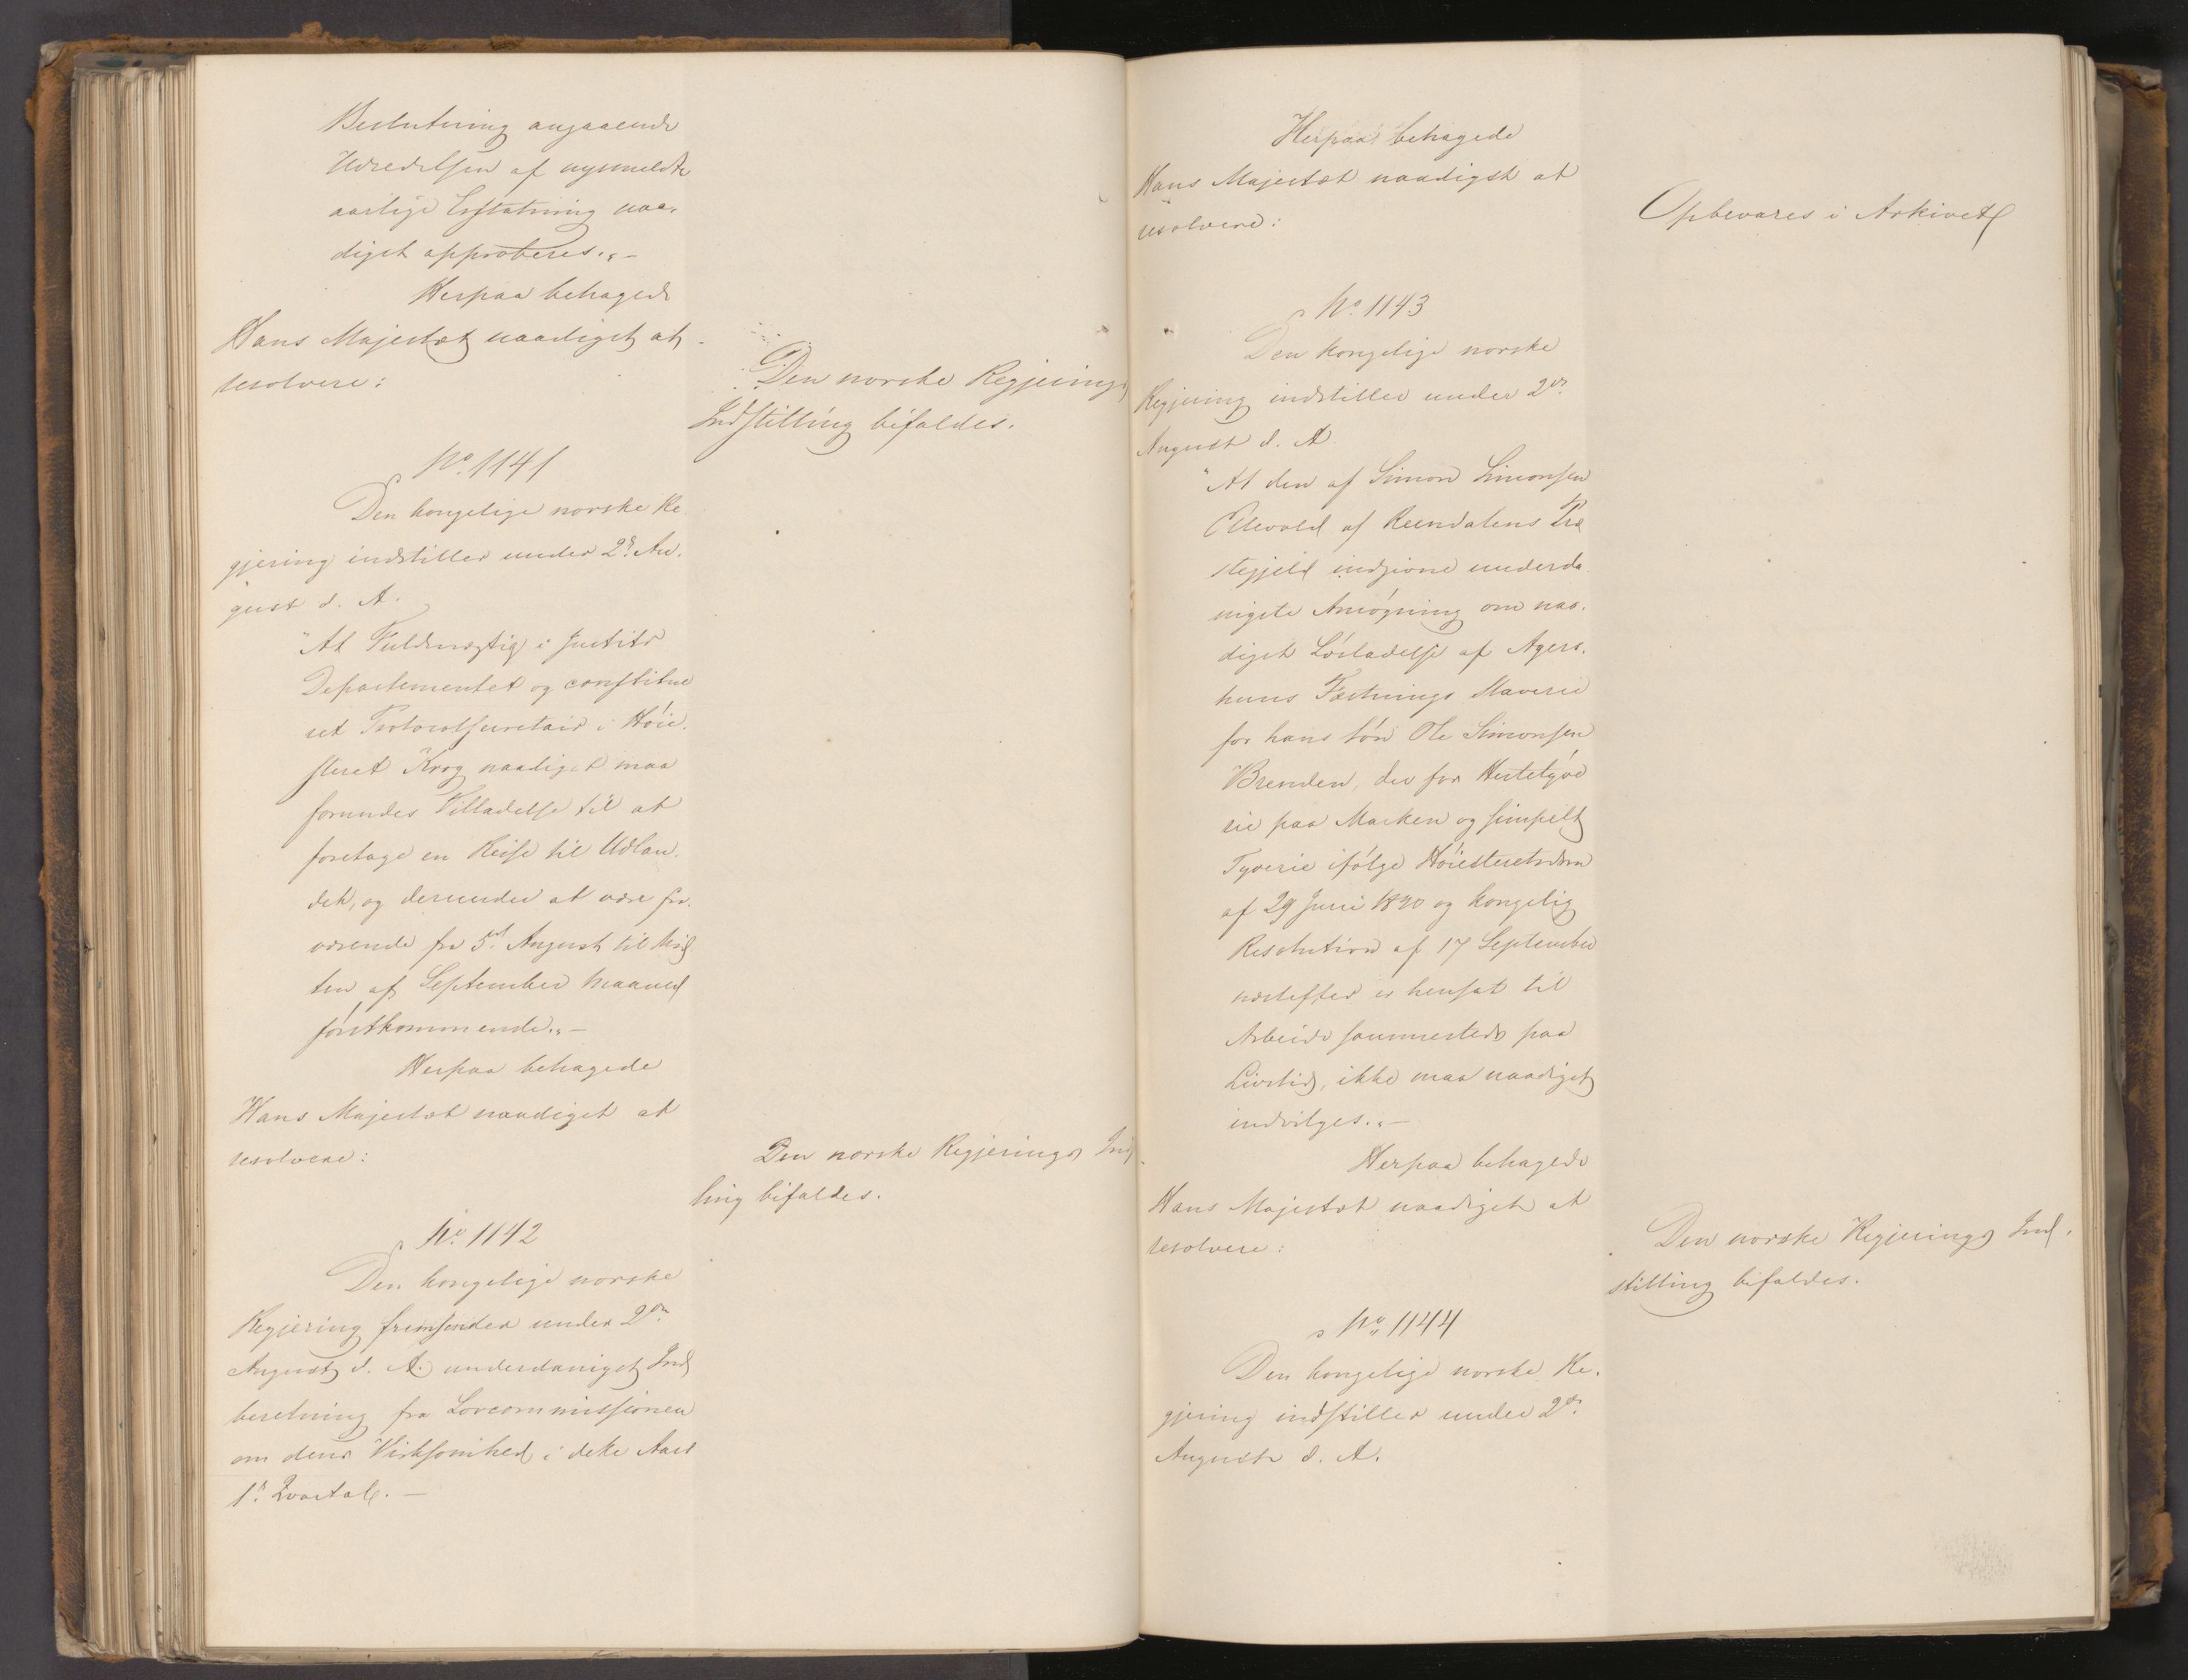 Beslutning angaaende
Udredelsen af nysmeldte
aarlige Erstatning naa-
digst approberes."-
Herpaa behagede
Hans Majestæt naadigst at
resolvere:
Den norske Regjerings
Indstilling bifaldes.
No. 1141
Den kongelige norske Re
gjering indstiller under 2d. Au-
gust d. A.
"At Fuldmægtig i Justits
Departementet og constitue
ret Protocolsecretair i Höie-
steret Krog naadigst maa
forundes Tilladelse til at
foretage en Reise til Udlan-
det, og derunder at være fra-
værende fra 5te. August til Mid
ten af September Maaned
förstkommende."-
Herpaa behagede
Hans Majestæt naadigst at
resolvere:
Den norske Regjerings Ind
ling bifaldes.
No. 1142
Den kongelige norske
Regjering fremsender under 2den
August d. A. underdanigst Ind
beretning fra Lovcommissionen
om dens Virksomhed i dette Aars
1ste Qvartal.-
Herpaa behagede
Hans Majestæt naadigst at
resolvere:
Opbevares i Arkivet
No. 1143
Den kongelige norske
Regjering indstiller under 2den
August d. A.
"At den af Simon Simonsen
af Reendalens Præ
stegjeld indgivne underda
nigste Ansögning om naa-
digst Lösladelse af Agers-
huus Fæstnings Slaverie
for hans Sön Ole Simonsen
Brenden, der for Hestetyve
rie paa Marken og simpelt
Tyverie ifölge Höiesteretsdom
af 29 Juni 1820 og kongelig
Resolution af 17 September
næstefter er hensat til
Arbeide sammesteds paa
Livstid, ikke maa naadigst
indvilges."-
Herpaa behagede
Hans Majestæt naadigst at
resolvere:
Den norske Regjerings Ind-
stilling bifaldes.
No. 1144
Den kongelige norske Re-
gjering indstiller under 2den
August d. A.